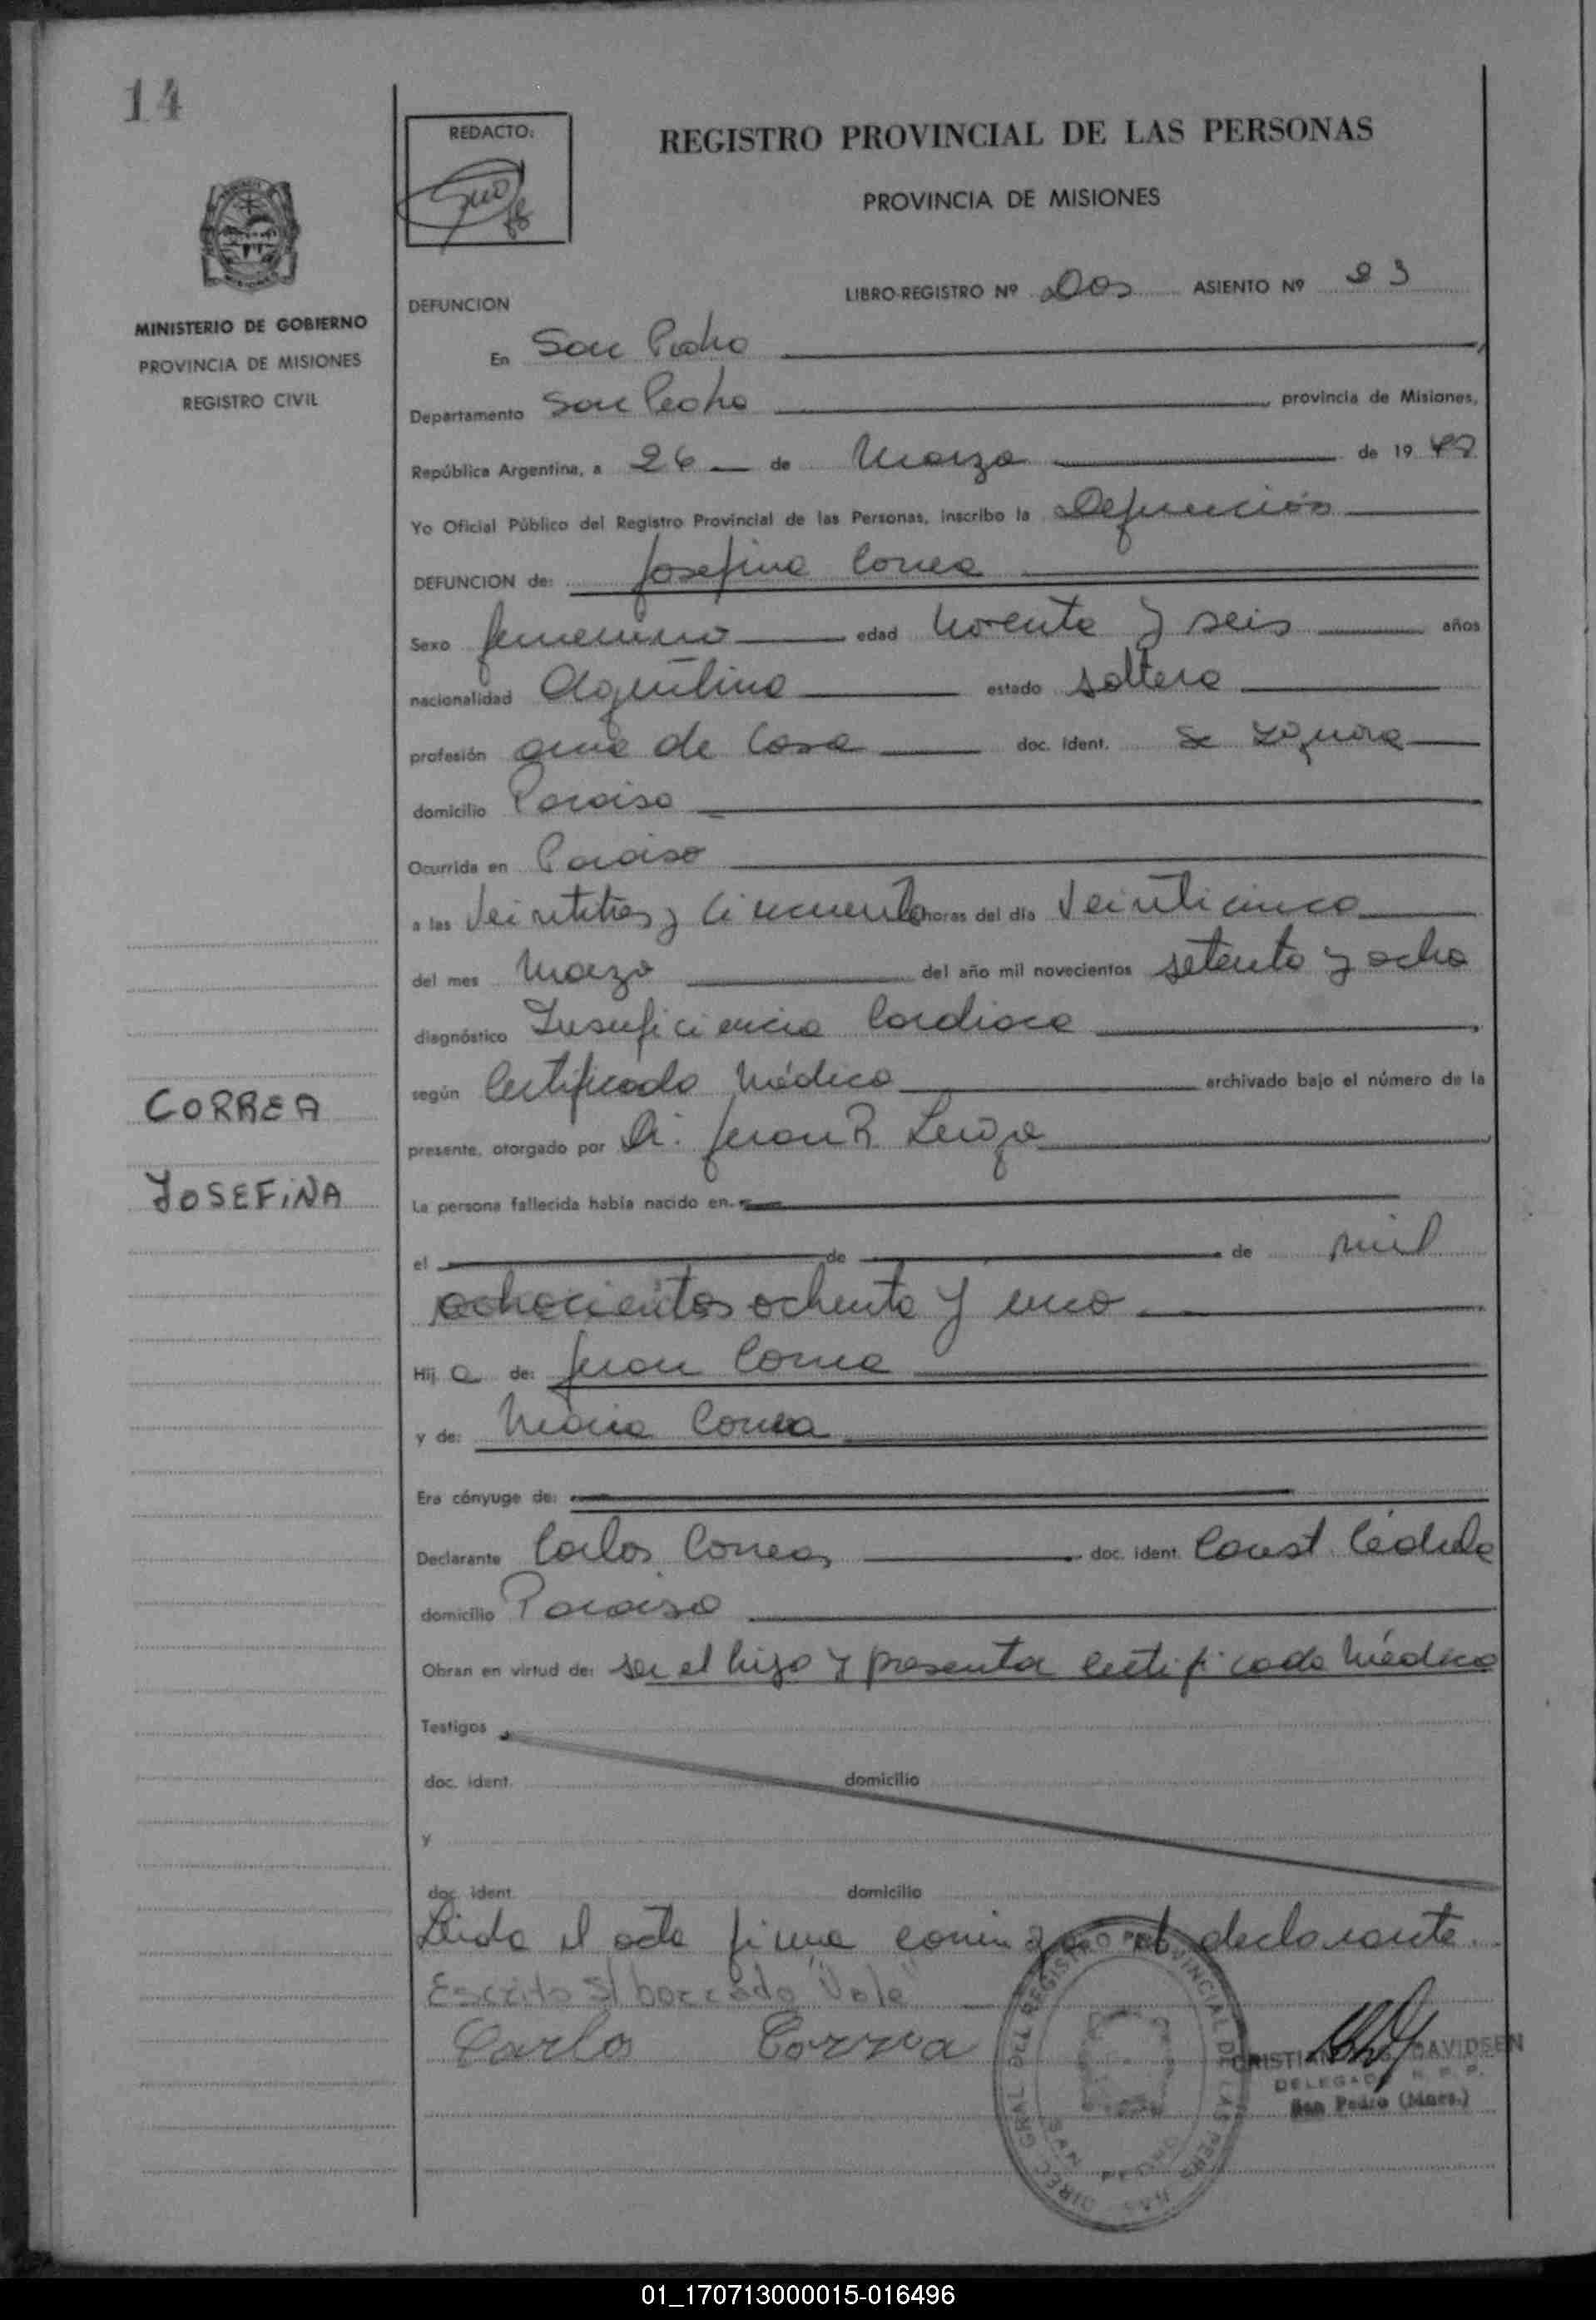 14
REDACTO:
REGISTRO PROVINCIAL DE LAS PERSONAS
PROVINCIA DE MISIONES
MINISTERIO DE GOBIERNO
PROVINCIA DE MISIONES
REGISTRO CIVIL
LIBRO-REGISTRO Nº Dos ASIENTO Nº 23
DEFUNCION
En San Pedro
Departamento San Pedro provincia de Misiones,
República Argentina, a 26 de Marzo de 19 78
Yo Oficial Público del Registro Provincial de las Personas, inscribo la Defunción
DEFUNCION de: Josefina Correa
Sexo femenino edad Noventa y seis años
nacionalidad Argentina estado soltera
profesión ama de Casa doc. Ident. Se ignora
domicilio Paraiso
Ocurrida en Paraiso
a las Veintitres y Cincuenta horas del día Veinticinco
del mes Marzo del año mil novecientos setenta y ocho
diagnóstico Insuficiencia Cardiaca
según Certificado Médico archivado bajo el número de la
presente, otorgado por Dr. Juan R
La persona fallecida había nacido en
el de de mil
ochocientos ochenta y uno
Hij a de: Juan Correa
y de: Maria Correa
Era cónyuge de:
Declarante Carlos Correa, doc. ident. Const. Cédula
domicilio Paraiso
Obran en virtud de: ser el hijo y presentar certificado Médico
Testigos
doc. ident. domicilio
y
doc. ident. domicilio
Leida el acta firma conmigo el declarante.
Escrito s/ borrado "Vale"
Carlos Correa
CORREA
JOSEFINA
DIREC. GRAL. DEL REGISTRO PROVINCIAL DE LAS PERSONAS
SAN PEDRO
DAVIDSEN
DELEGADO R. P. P.
San Pedro (Mnes.)
01_170713000015-016496